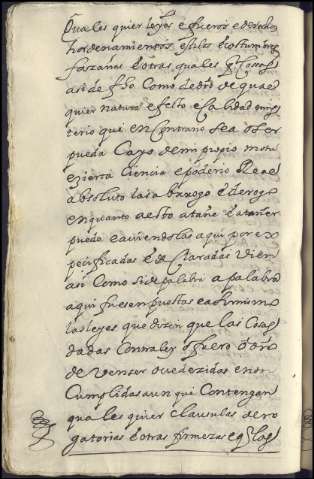 Qualesquier leyes e fueros e derechos
hordenamientos estilos e costumbres
fazañas e otras quales qr cosas
asi de fho Como de dro de qual
quier natura efeto e Calidad mis
terio que en Contrario sea o ser
pueda Ca yo de mi propio motu
e zierta Ciencia e poderio Real
absoluto las abrrogo e derogo
en quanto a esto atañe e atañer
puede e aviendolas aqui por ex
pecificadas e declaradas vien
asi Como si de palabra a palabra
aqui fuesen puestas e asimismo
las leyes que dizen que las Cosas
dadas Contra ley o fuero o dro
deven ser ovedezidas e no
Cumplidas aunque Contengan
quales quier clausulas dero
gatorias e otras firmezas e q las